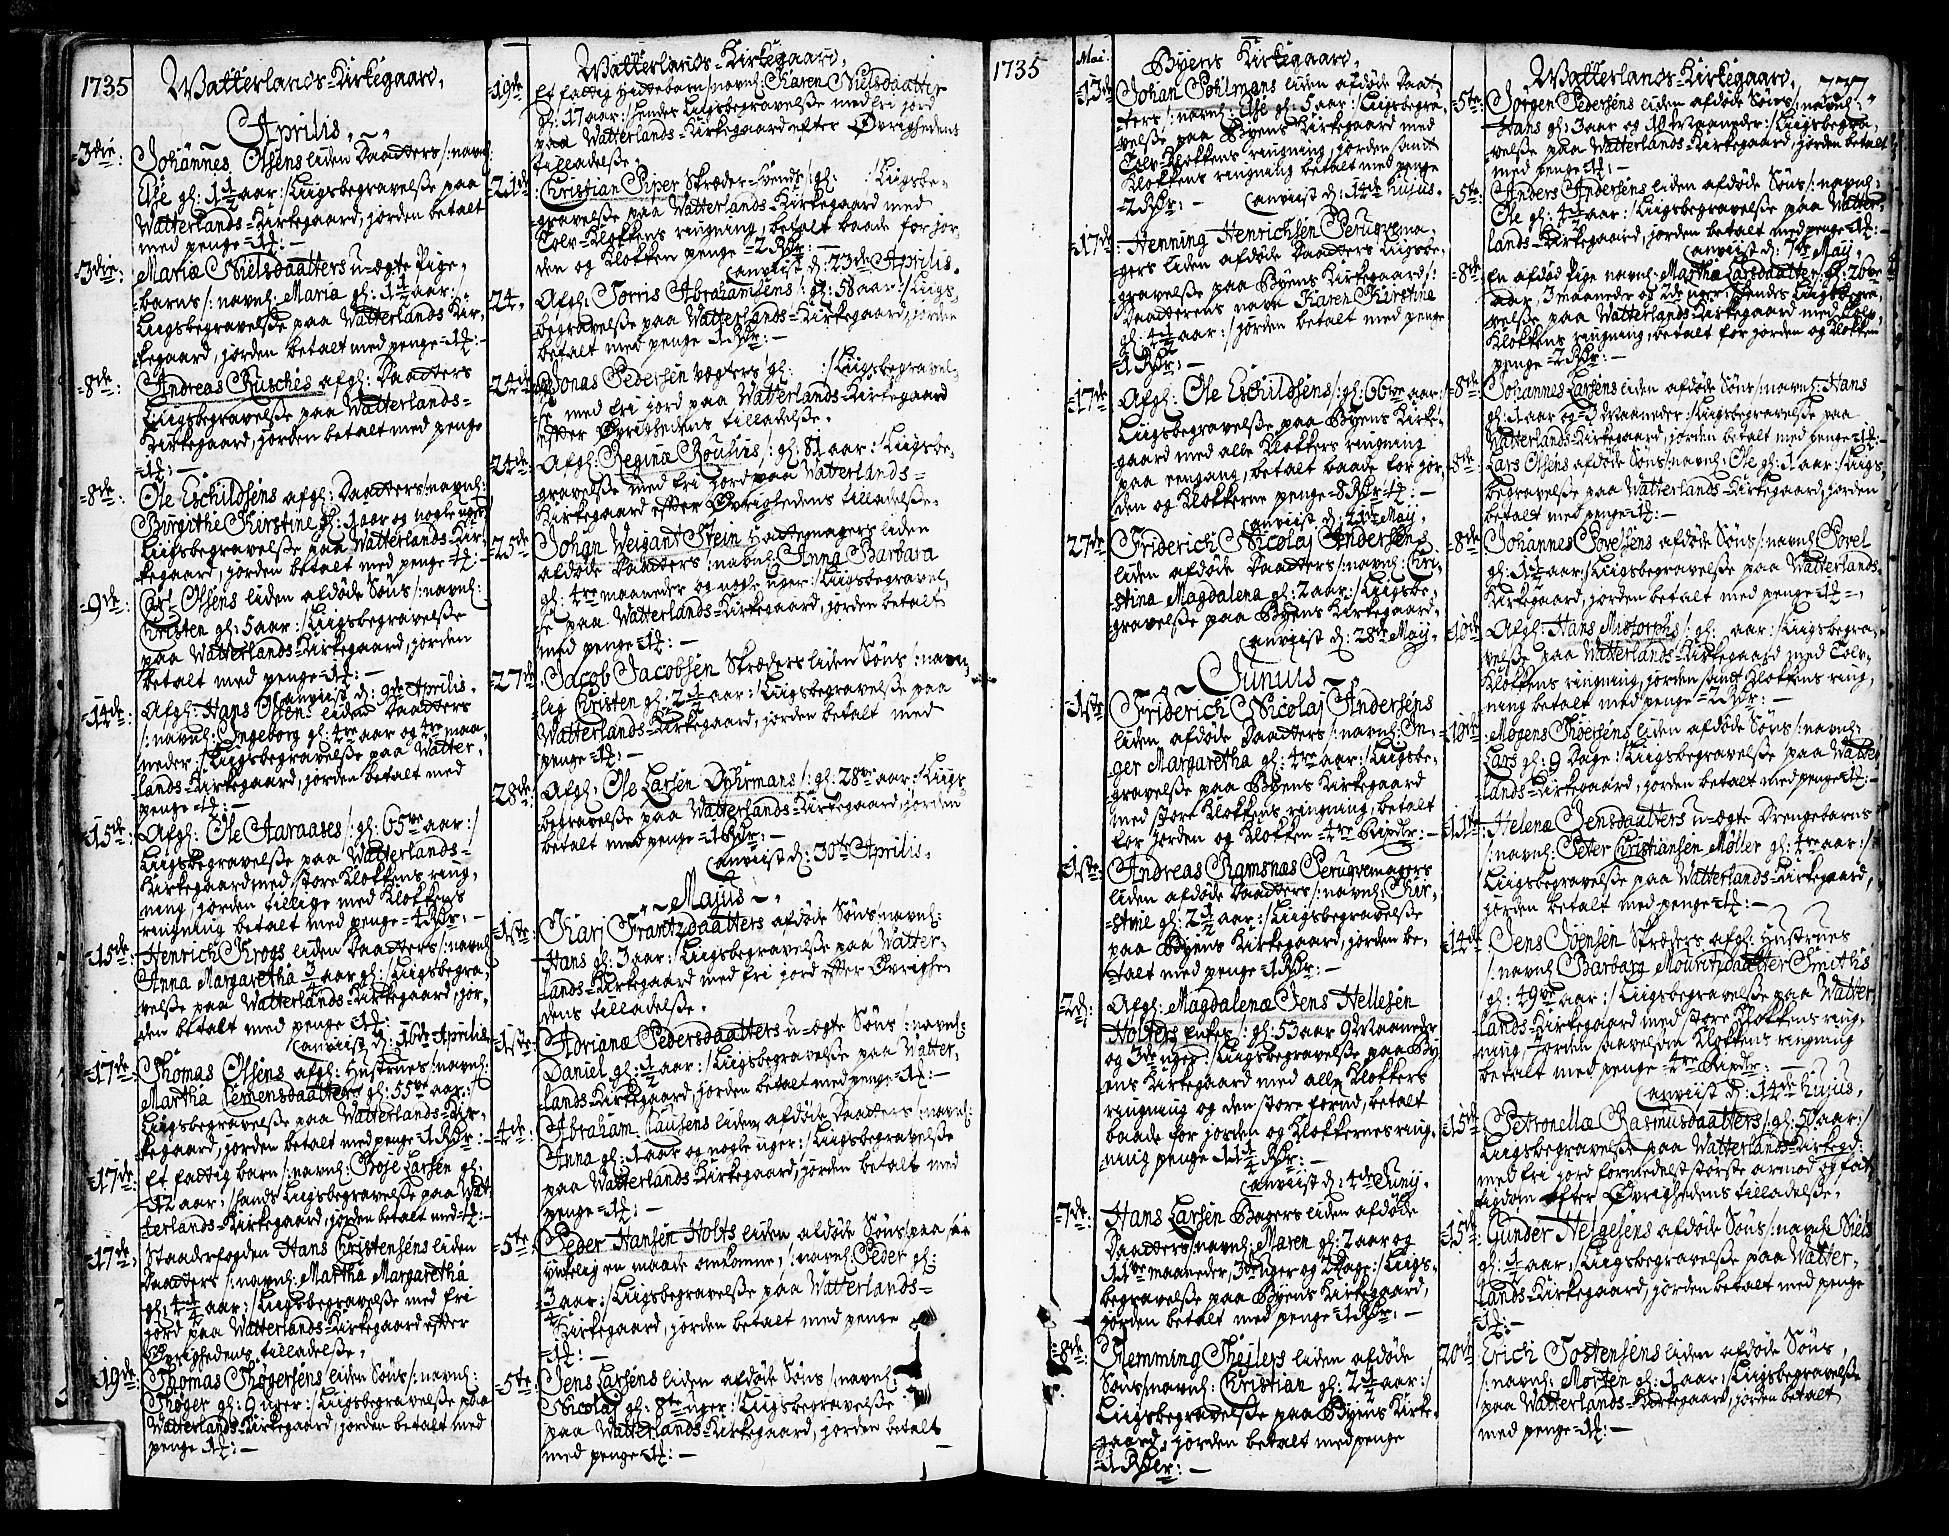 1735 Watterlands-Kirkegaard,
Aprilis,
3die: Johannes Olsens liden Daatters /: navnl:
Else gl: 1 1/2 aar :/ Liigsbegravelsße paa
Watterlands-Kirkegaard, jorden betalt
med penge
3die: Mariæ Nielsdaatters u-ægte Pige-
barns /: navnl: Maria gl: 1 1/2 aar :/
Liigsbegravelsße paa Watterlands Kir-
kegaard, jorden betalt med penge
8de: Andreas Rusches afgl: Daatters
Liigsbegravelsße paa Watterlands-
Kirkegaard, jorden betalt med penge
8de: Ole Eschildsens afgl: Daatters /: navnl:
Birgithe Kirstine gl: 1 aar og nogle uger
Liigsbegravelsße paa Watterlands-Kir-
kegaard, jorden betalt med penge
9de: Lars Olsens liden afdøde Søns /: navnl:
Christen gl: 5 aar :/ Liigsbegravelsße
paa Watterlands-Kirkegaard, jorden
betalt med penge
anviist d: 9de Aprilis.
14de: Afgl: Hans Olsens liden Daatters
/: navnl: Ingeborg gl: 4re aar og 4re maa-
neder :/ Liigsbegravelsße paa Watter-
lands-Kirkegaard, jorden betalt med
penge
15de: Afgl: Ole Aaraases /: gl: 65ve aar :/
Liigsbegravelsße paa Watterlands-
Kirkegaard med store Klokkens ring-
ning, jorden tillige med Klokkens
ringning betalt med penge 4 Rdr: –
15de: Henrich Krogs liden Daatters /: navnl
Anna Margaretha 3/4 aar gl: / Liigsbegra-
velsße paa Watterlands-Kirkegaard, jor-
den betalt med penge
anviist d: 16de Aprilis
17de: Thomas Olsens afgl: Hustrues /: navnl:
Martha Clemensdaatters gl: 55ve aar :/
Liigsbegravelsße paa Watterlands-Kir-
kegaard, jorden betalt med penge 1 Rdr: –
17de: Et fattig barn /: navnl: Boje Larsen gl:
12 aar :/ hands Liigsbegravelsße paa Wat-
terlands-Kirkegaard, jorden betalt med
17de: Staadsfogden Hans Christensens liden
Daatters /: navnl: Martha Margaretha
gl: 4 1/2 aar :/ Liigsbegravelsße med fri
jord paa Watterlands-Kirkegaard efter
Øvrighedens tilladelsße.
19de: Thomas Thøgersens liden Søns /: navnl:
Thøger gl: 9 uger :/ Liigsbegravelsße paa
Watterlands-Kirkegaard, jorden betalt med
penge
Watterlands-Kirkegaard,
19de Et fattig Hittebarn /: navnl: Karen Nielsdaatter
gl: 17 aar :/ hendes Liigsbegravelsße med fri jord
paa Watterlands-Kirkegaard efter Øvrighedens
tilladelsße.
21de Christian Piper Skræder-Svends /: gl: :/ Liigsbe-
gravelsße paa Watterlands-Kirkegaard med
Tolv-Klokkens ringning, betalt baade for jor-
den og Klokken penge 2 Rdr: –
anviist d: 23de Aprilis.
24, Afgl: Torris Abrahamsens /: gl: 58 aar :/ Liigs-
begravelsße paa Watterlands-Kirkegaard, jorden
betalt med penge 1 Rdr: –
24de Jonas Pedersen vægters gl: :/ Liigsbegravel-
sße med fri jord paa Watterlands-Kirkegaard
effter Øvrighedens tilladelsße.
24de: Afgl: Reginæ /: gl: 81 aar :/ Liigsbe-
gravelsße med fri jord paa Watterlands-
Kirkegaard effter Øvrighedens tilladelsße.
25de Johan Weigant Stein Hattemagers liden
afdøde Daatters /: navnl: Anna Barbara
gl: 4re maaneder og nogle uger :/ Liigsbegravel-
sße paa Watterlands-Kirkegaard, jorden betalt
med penge
27de Jacob Jacobsen Skræders liden Søns /: navn-
lig Christen gl: 2 1/2 aar :/ Liigsbegravelsße paa
Watterlands-Kirkegaard, jorden betalt med
penge
28de: Afgl: Ole Larsen Dyhrmans /: gl: 28ve aar :/ Liigs-
begravelsße paa Watterlands-Kirkegaard, jorden
betalt med penge 1 Rdr: –
anviist d: 30te Aprilis.
Majus
1ste: Kari Frantzdaatters afdøde Søns /: navnl:
Hans gl: 3 aar :/ Liigsbegravelsße paa Watter-
lands-Kirkegaard med fri jord effter Øvrighe-
dens tilladelsße.
1ste Adrianæ Pedersdaatters u-ægte Søns /: navnl:
Daniel gl: 1/2 aar :/ Liigsbegravelsße paa Watter-
lands-Kirkegaard, jorden betalt med penge
4de: Abraham Clausens liden afdøde Daatters /: navnl:
Anna gl: 1 aar og nogle uger :/ Liigsbegravelsße
paa Watterlands-Kirkegaard, jorden betalt med
penge
5te Peder Hansen Holts liden afdøde Søns paa
ynkelig en maade omkomne, /: navnl: Peder gl:
3/4 aar :/ Liigsbegravelsße paa Watterlands-
Kirkegaard, jorden betalt med penge
5te: Jens Larsens liden afdøde Søns /: navnl:
Nicolaj gl: 8te uger :/ Liigsbegravelsße
paa Watterlands-Kirkegaard, jorden betalt
med penge
1735 Mai: Byens Kirkegaard,
13de Johan Pohlmans liden afdøde Daat-
ters /: navnl: Else gl: 5 aar :/ Liigsbegra-
velsße paa Byens Kirkegaard med
Tolv-Klokkens ringning, jorden samt
Klokkens ringning betalt med penge
2 Rdr: – anviist d: 14de hujus.
17de Henning Henrichsen Peruqvema-
gers liden afdøde Daatters Liigsbe-
gravelsße paa Byens Kirkegaard /:
Daatterens navn Karen Kirstine
gl: 4 1/2 aar :/ jorden betalt med penge
1 Rdr: –
17de Afgl: Ole Eschildsens /: gl: 66ve aar :/
Liigsbegravelsße paa Byens Kirke-
gaard med alle Klokkers ringning
paa eengang, betalt baade for jor-
den og Klokkerne penge 8 Rdr
anviist d: 21de Maij,
27de Friderich Nicolaj Andersens
liden afdøde Daatters /: navnl: Chri-
stina Magdalena gl: 2 aar :/ Liigsbe-
gravelsße paa Byens Kirkegaard.
anviist d: 28de Maij.
Junius
1ste Friderich Nicolaj Andersens
liden afdøde Daatters /: navnl: In-
ger Margaretha gl: 4re aar :/ Liigsbe-
gravelsße paa Byens Kirkegaard
med store Klokkens ringning, betalt
for jorden og Klokken 4re Rixdr: –
1ste Andreas Ramsnæs Peruqvemagers
liden afdøde Daatters /: navnl: Kir-
stine gl: 2 1/2 aar :/ Liigsbegravelsße
paa Byens Kirkegaard, jorden be-
talt med penge 1 Rdr: –
2d: Afgl: Magdalenæ Jens Nellesen
Holters Enkes /: gl: 53 aar 9 Maaneder
og 3de uger :/ Liigsbegravelsße paa By-
ens Kirkegaard med alle Klokkers
ringning og den store forud, betalt
baade for jorden og Klokkernes ring-
ning penge 11 1/2 Rdr: –
anviist d: 4de Junij.
7de: Hans Larsen Bagers liden afdøde
Daatters /: navnl: Maren gl: 2 aar og
11ve maaneder, 3de uger og 2 Dage :/ Liigs-
begravelsße paa Byens Kirkegaard,
jorden betalt med penge 1 Rdr: –
8de: Flemming Theilers liden afdøde
Søns /: navnl: Christian gl: 2 1/2 aar :/
Liigsbegravelsße paa Byens Kirke-
gaard, jorden betalt med penge
1 Rdr: –
Watterlands-Kirkegaard, 237
5te: Jørgen Pedersens liden afdøde Søns /: navnl:
Hans gl: 3 aar og 10 Maaneder :/ Liigsbegra-
velsße paa Watterlands-Kirkegaard, jorden betalt
med penge
5te: Anders Andersens liden afdøde Søns /: navnl:
Ole gl: 4 1/2 aar :/ Liigsbegravelsße paa Watter-
lands-Kirkegaard, jorden betalt med penge
anviist d: 7de Maij,
8de En afdød Pige navnl: Martha Larsdaatter, gl: 26ve
aar, 3 maaneder og 2de uger, hendes Liigsbegra-
velsße paa Watterlands-Kirkegaard med Tolv-
Klokkens ringning, betalt for jorden og Klokken
penge 2 Rdr: –
8de Johannes Larsens liden afdøde Søns /: navnl: Hans
gl: 1 aar og 3 Maaneder :/ Liigsbegravelsße paa
Watterlands-Kirkegaard, jorden betalt med penge
8de: Lars Olsens afdøde Søns /: navnl: Ole gl: 1 aar :/ Liigs-
begravelsße paa Watterlands-Kirkegaard, jorden
betalt med penge
8de Johannes Povelsens afdøde Søns /: navnl: Povel
gl: 1 1/2 aar :/ Liigsbegravelsße paa Watterlands-
Kirkegaard, jorden betalt med penge
10de Afgl: Hans Mistorphs /: gl: aar :/ Liigsbegra-
velsße paa Watterlands-Kirkegaard med Tolv-
Klokkens ringning, jorden samt Klokkens ring-
ning betalt med penge 2 Rdr: –
10de: Mogens Thoersens liden afdøde Søns /: navnl:
Lars gl: 9 Dage :/ Liigsbegravelsße paa Watter-
lands-Kirkegaard, jorden betalt med penge
11te Helenæ Jensdaatters u-ægte Drengebarns
/: navnl: Peter Christiansen Møller gl: 4re aar :/
Liigsbegravelsße paa Watterlands-Kirkegaard,
jorden betalt med penge
14de Jens Joensen Skræders afgl: Hustrues
/: navnl: Barbara Mouritzdaatter Smiths
gl: 49ve aar :/ Liigsbegravelsße paa Watter-
lands-Kirkegaard med store Klokkens ring-
ning, jorden saavelsom Klokkens ringning
betalt med penge 4re Rixdr: –
anviist d: 14de hujus,
15de Petronellæ Rasmusdaatters /: gl: 50 aar :/
Liigsbegravelsße paa Watterlands-Kirkegd:
med fri jord formedelst største armod og fat-
tigdom efter Øvrighedens tilladelsße.
15de Gunder Helgesens afdøde Søns /: navnl: Niels
gl: 1/2 aar :/ Liigsbegravelsße paa Watter-
lands-Kirkegaard, jorden betalt med penge
20de Erich Tostensens liden afdøde Søns,
/: navnl: Morten gl: 1 aar :/ Liigsbegravelsße
paa Watterlands-Kirkegaard, jorden betalt
med penge